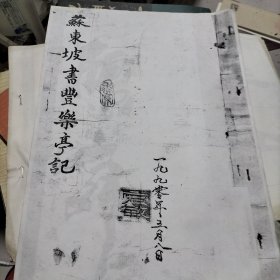 蘇東坡書豐樂亭記
一九九零年三月八日